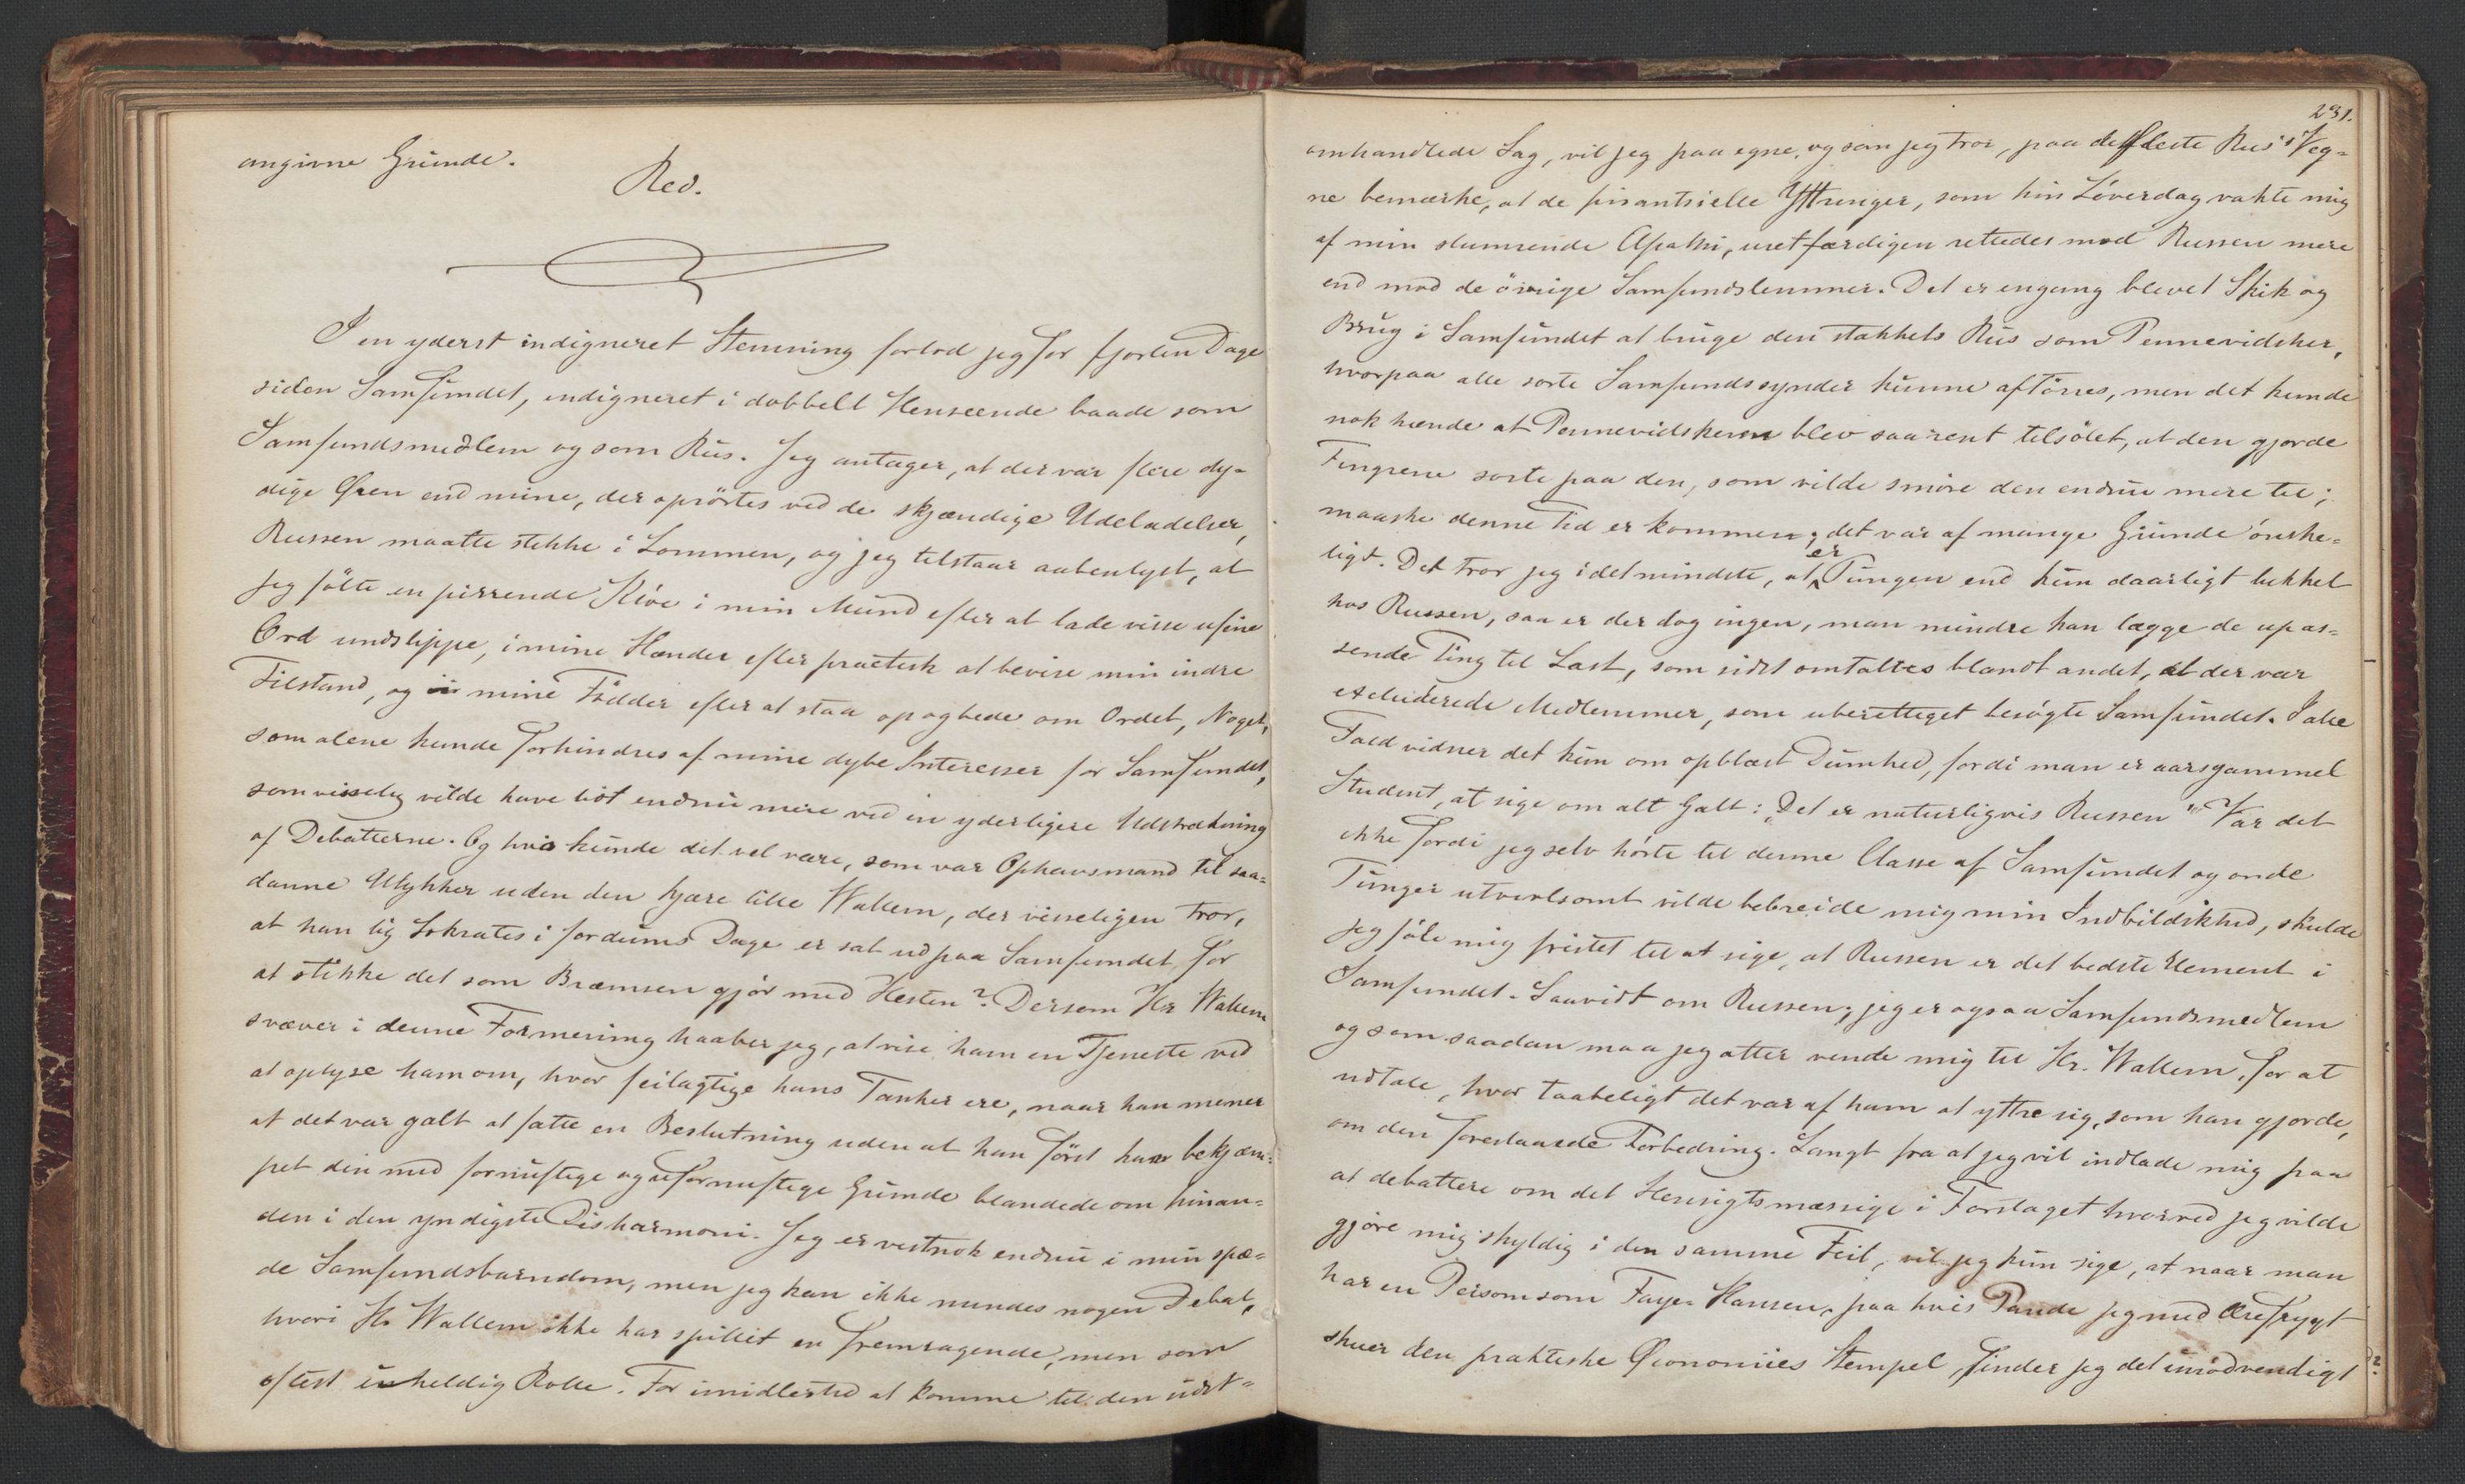 angivne Grunde.
Red.
I en yderst indigneret Stemning forlod jeg for fjorten Dage
siden Samfundet, indigneret i dobbelt Henseende baade som
Samfundsmedlem og som Rus. Jeg antager, at der var flere dy-
dige Øren end mine, der oprörtes ved de skjændige Udeladelser,
Russen maatte stikke i Lommen, og jeg tilstaar aabenlyst, at
jeg fölte en pirrende Klöe i min Mund efter at lade visse ufine
Ord undslippe, i mine Hænder efter practisk at bevise min indre
Tilstand, og i mine Födder efter at staa op og bede om Ordet, Noget,
som alene kunde forhindres af mine dybe Interesser for Samfundet,
som visselig vilde have lidt endnu mere ved en yderligere Udstrækning
af Debatterne. Og hvo kunde det vel være, som var Ophavsmand til saa-
danne Ulykker uden den kjære lille Wallem, der visseligen tror,
at han lig Sokrates i fordums Dage er sat ud paa Samfundet for
at stikke det som Bræmsen gjör med Hesten? Dersom Hr Wallem
svæver i denne Formening haaber jeg, at vise ham en Tjeneste ved
at oplyse ham om, hvor feilagtige hans Tanker ere, naar han mener
at det var galt at fatte en Beslutning uden at han först har bekjæm-
pet den med fornuftige og ufornuftige Grunde blandede om hinan-
den i den yndigste Disharmoni. Jeg er vistnok endnu i min spæ-
de Samfundsbarndom, men jeg kan ikke mindes nogen Debat,
hvori Hr Wallem ikke har spillet en fremragende, men som
oftest uheldig Rolle. For imidlertid at komme til den sidst-
231.
omhandlede Sag, vil jeg paa egne, og som jeg tror, paa de fleste Rus's Veg-
ne bemærke, at de finantsielle Yttringer, som hin Löverdag vakte mig
af min slumrende Apathi, uretfærdigen rettedes mod Russen mere
end mod de övrige Samfundslemmer. Det er engang blevet Skik og
Brug i Samfundet at bruge den stakkels Rus som Pennevidsker,
hvorpaa alle sorte Samfundssynder kunne aftörres, men det kunde
nok hænde at Pennevidskeren blev saa rent tilsölet, at den gjorde
Fingrene sorte paa den, som vilde smöre den endnu mere til;
maaske denne Tid er kommen; det var af mange Grunde önske-
ligt. Det tror jeg i det mindste, at er Tungen end kun daarligt lukket
hos Russen, saa er der dog ingen, man mindre kan lægge de upas-
sende Ting til Last, som sidst omtaltes blandt andet, at der var
excluderede Medlemmer, som uberettiget besögte Samfundet. I alle
Fald vidner det kun om opblæst Dumhed, fordi man er aarsgammel
Student, at sige om alt Galt: "Det er naturligvis Russen" Var det
ikke fordi jeg selv hörte til denne Classe af Samfundet og onde
Tunger utvivlsomt vilde bebreide mig min Indbildskhed, skulde
jeg föle mig fristet til at sige, at Russen er det bedste Element i
Samfundet. Saavidt om Russen; jeg er ogsaa Samfundsmedlem
og som saadan maa jeg atter vende mig til Hr. Wallem, for at
udtale, hvor taabeligt det var af ham at yttre sig, som han gjorde,
om den foreslaaede Forbedring. Langt fra at jeg vil indlade mig paa
at debattere om det Hensigtsmæssige i Forslaget hvorved jeg vilde
gjöre mig skyldig i den samme Feil, vil jeg kun sige, at naar man
har en Person som Faye-Hansen, paa hvis Pande jeg med Ærefrygt
skuer den praktiske Øconomies Stempel, finder jeg det unödvendigt